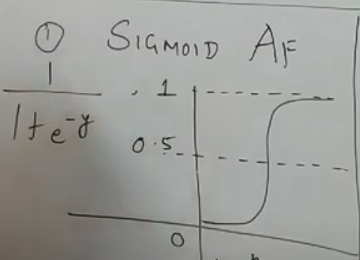 ① SIGMOID AF
1
1+e^-y
1
0.5
0